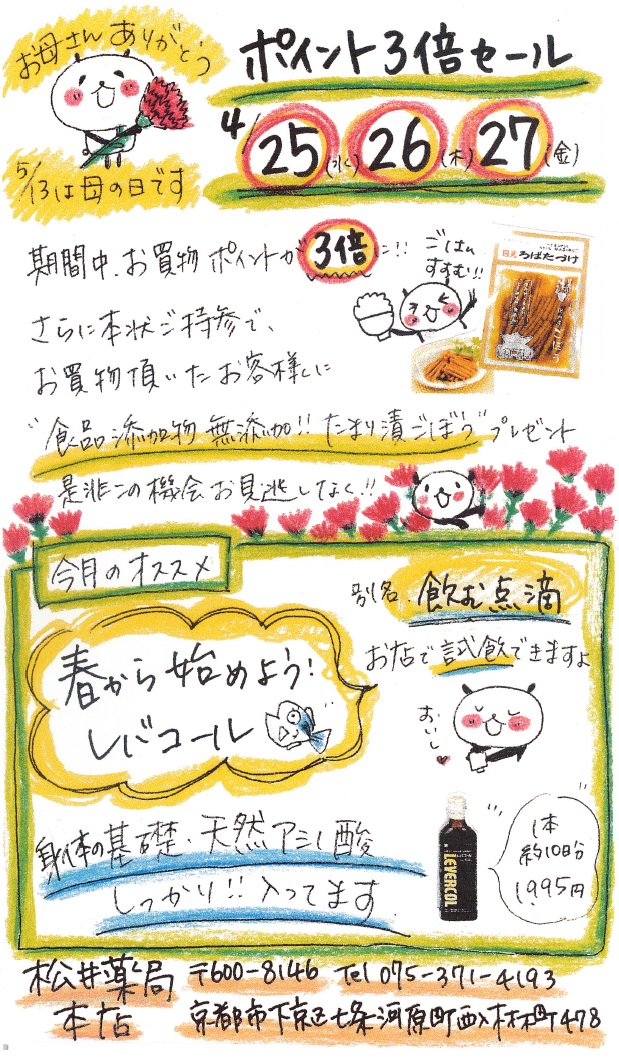 お母さん ありがとう
5/13は母の日です
ポイント3倍セール
4/25(水) 26(木) 27(金)
期間中、お買物ポイントが 3倍に!!
ごはん
すすむ!!
ろばたづけ
さらに本状ご持参で、
お買物頂いたお客様に
"食品添加物無添加!! たまり漬ごぼう"プレゼント
是非この機会お見逃しなく!!
今月のオススメ
春から始めよう!
レバコール
別名、飲む点滴
お店で試飲できますよ
おいし
身体の基礎、天然アミノ酸
しっかり!!入ってます
LEVERCOL
1本
約10日分
1,995円
松井薬局
本店
〒600-8146 Tel 075-371-4193
京都市下京区七条河原町西入材木町478